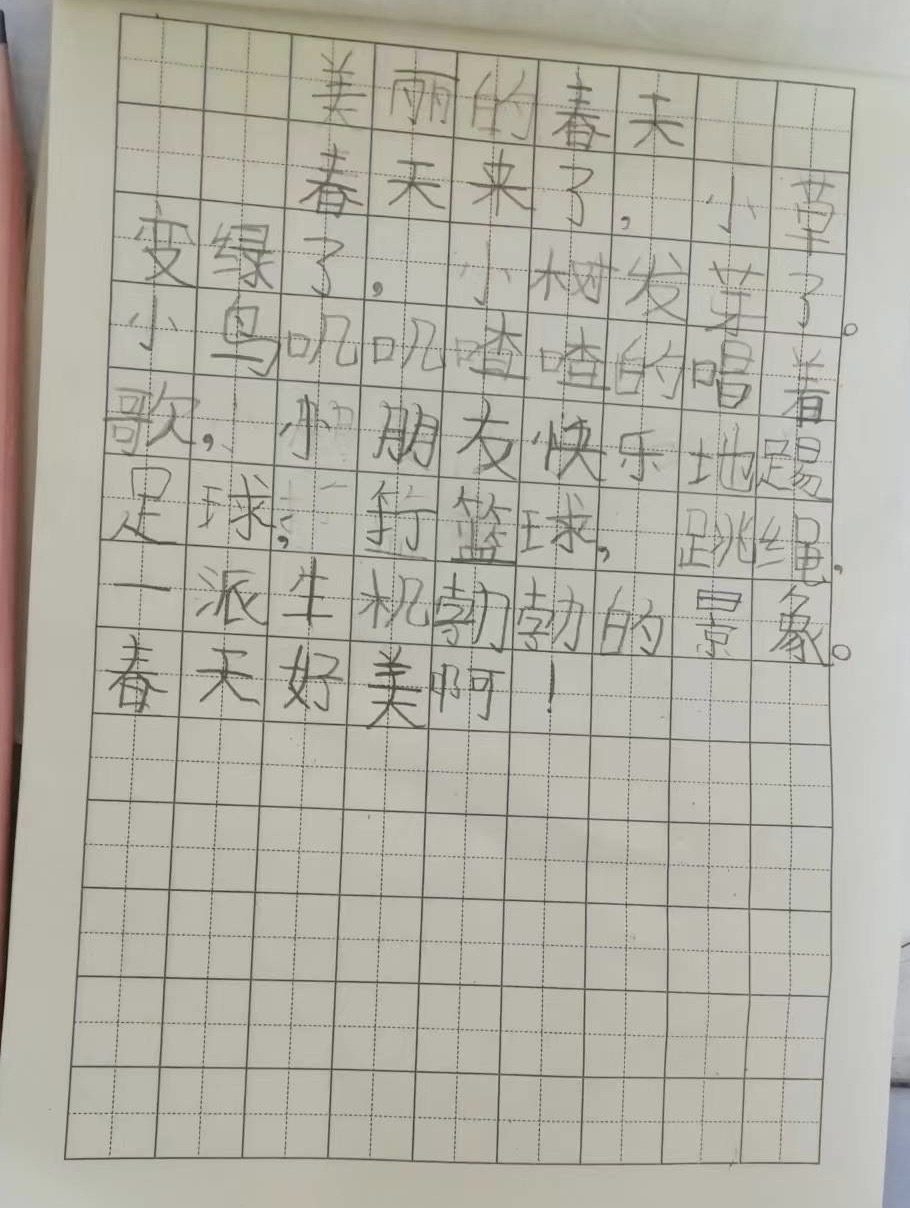 美丽的春天
春天来了，小草
变绿了，小树发芽了。
小鸟叽叽喳喳的唱着
歌，小朋友快乐地踢
足球，打篮球，跳绳，
一派生机勃勃的景象。
春天好美啊！